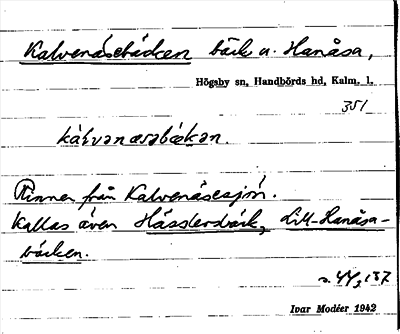 Kalvenäsebäcken bäck u. Hanåsa,
Högsby sn, Handbörds hd, Kalm. l.
351
kálvənæsəbækən.
Rinner från Kalvenäsesjön.
Kallas även Hässlersbäck, Lill-Hanåsa-
bäcken.
s. 44, 137
Ivar Modéer 1942